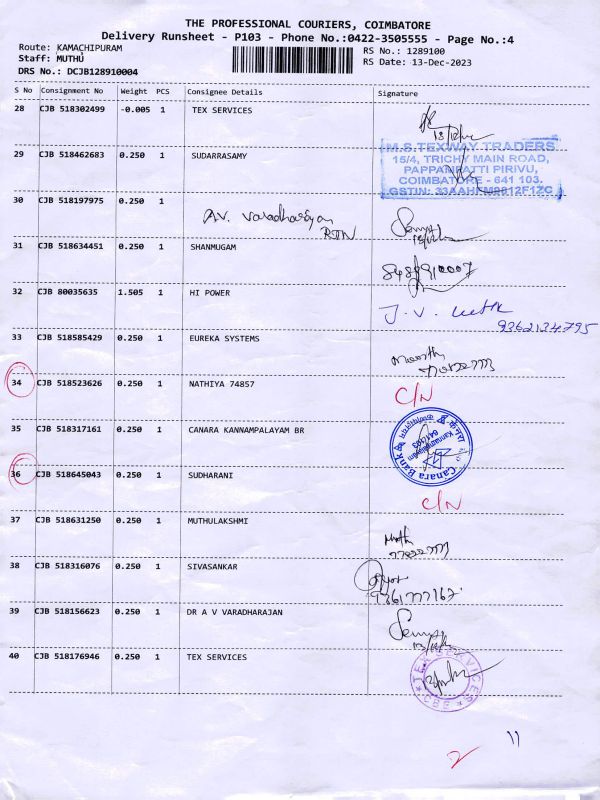 THE PROFESSIONAL COURIERS, COIMBATORE
Delivery Runsheet - P103 - Phone No.:0422-3505555 - Page No.:4
Route: KAMACHIPURAM
Staff: MUTHU
DRS No.: DCJB128910004
RS No.: 1289100
RS Date: 13-Dec-2023
S No Consignment No Weight PCS Consignee Details Signature
28 CJB 518302499 -0.005 1 TEX SERVICES
M.S.TEXWAY TRADERS
15/4, TRICHY MAIN ROAD,
PAPPANPATTI PIRIVU,
COIMBATORE - 641 103.
29 CJB 518462683 0.250 1 SUDARRASAMY
30 CJB 518197975 0.250 1
A.V. Varadharajan
RTN
31 CJB 518634451 0.250 1 SHANMUGAM
32 CJB 80035635 1.505 1 HI POWER
J.V.
9362134795
33 CJB 518585429 0.250 1 EUREKA SYSTEMS
34 CJB 518523626 0.250 1 NATHIYA 74857 C/N
35 CJB 518317161 0.250 1 CANARA KANNAMPALAYAM BR
Canara Bank
Kannampalayam
641103
36 CJB 518645043 0.250 1 SUDHARANI C/N
37 CJB 518631250 0.250 1 MUTHULAKSHMI
38 CJB 518316076 0.250 1 SIVASANKAR
39 CJB 518156623 0.250 1 DR A V VARADHARAJAN
40 CJB 518176946 0.250 1 TEX SERVICES
TEX SERVICES
CBE
11
2